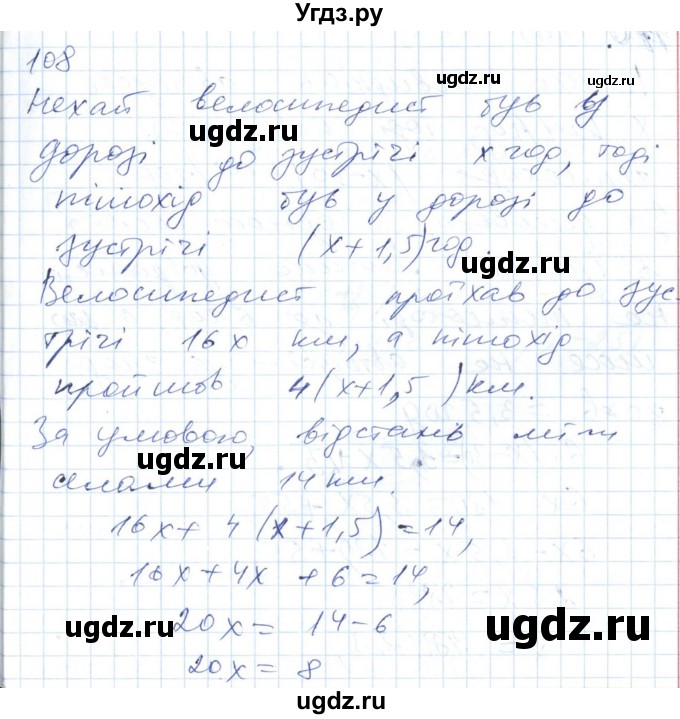 Угдз.ру
108
ugdz.ru
Нехай велосипедист був у
ugdz.ru
дорозі до зустрічі x год, тоді
пішохід був у дорозі до
зустрічі (x+1,5) год.
ugdz.ru
Велосипедист проїхав до зус-
трічі 16x км, а пішохід
ugdz.ru
пройшов 4(x+1,5) км.
За умовою, відстань між
ugdz.ru
селами 14 км.
16x + 4(x+1,5) = 14,
ugdz.ru
16x + 4x + 6 = 14,
20x = 14 - 6
ugdz.ru
ugdz.ru
20x = 8
ugdz.ru